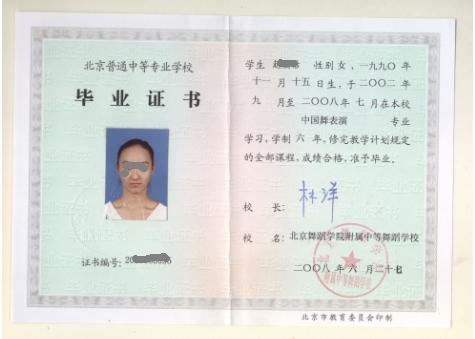 北京普通中等专业学校
毕业证书
证书编号: 20
学生 赵 性别女,一九九〇年
十一月十五日生,于二〇〇二年
九月至二〇〇八年七月在本校
中国舞表演 专业
学习,学制六年,修完教学计划规定
的全部课程,成绩合格,准予毕业。
校长: 林洋
校名: 北京舞蹈学院附属中等舞蹈学校
二〇〇八年六月二十七
北京市教育委员会印制